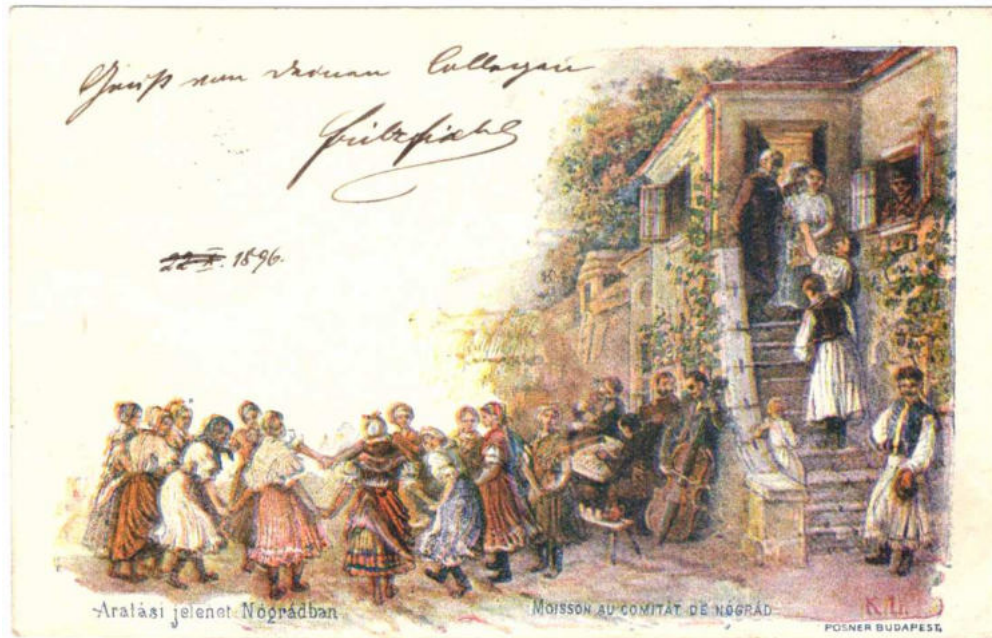 Gruß von deinem Collegen
Fritz
22 X. 1896.
Aratási jelenet Nógrádban
MOISSON AU COMITAT DE NÓGRÁD
POSNER BUDAPEST,